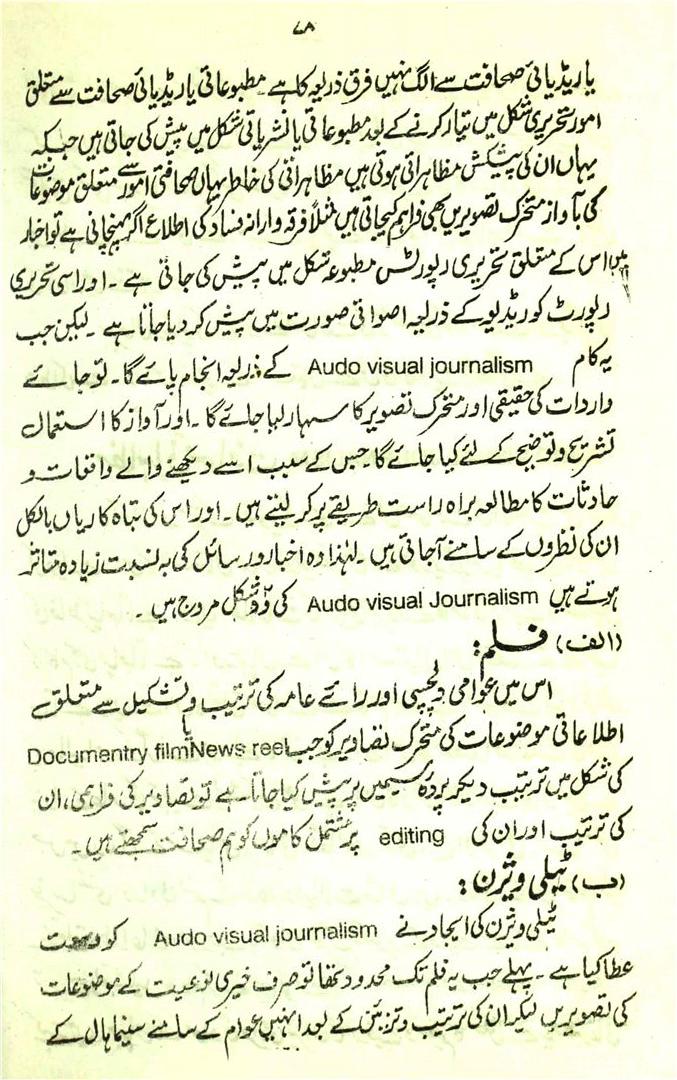 ۷۸
یا ریڈیائی صحافت سے الگ نہیں فرق ذریعہ کا ہے مطبوعاتی یا ریڈیائی صحافت سے متعلق
امور تحریری شکل میں تیار کرنے کے بعد مطبوعاتی یا نشریاتی شکل میں پیش کی جاتی ہیں جبکہ
یہاں ان کی پیشکش مظاہراتی ہوتی ہیں مظاہراتی کی خاطر یہاں صحافتی امور سے متعلق موضوعات
کی با آواز متحرک تصویریں بھی فراہم کیجاتی ہیں مثلاً فرقہ وارانہ فساد کی اطلاع اگر پہنچانی ہے تو اخبار
میں اس کے متعلق تحریری رپورٹس مطبوعہ شکل میں پیش کی جاتی ہے ۔ اور اسی تحریری
رپورٹ کو ریڈیو کے ذریعہ اصواتی صورت میں پیش کر دیا جاتا ہے ۔ لیکن جب
یہ کام Audo visual journalism کے ذریعہ انجام پائے گا ۔ تو جائے
واردات کی حقیقی اور متحرک تصویر کا سہارا لیا جائے گا ۔ اور آواز کا استعمال
تشریح و توضیح کے لئے کیا جائے گا ۔ جس کے سبب اسے دیکھنے والے واقعات و
حادثات کا مطالعہ براہ راست طریقے پر کر لیتے ہیں ۔ اور اس کی تباہ کاریاں بالکل
ان کی نظروں کے سامنے آجاتی ہیں ۔ لہٰذا وہ اخبار و رسائل کی بہ نسبت زیادہ متاثر
ہوتے ہیں Audo visual Journalism کی دو شکل مروج ہیں ۔
(الف) فلم :
اس میں عوامی دلچسپی اور رائے عامہ کی ترتیب و تشکیل سے متعلق
اطلاعاتی موضوعات کی متحرک تصاویر کو جب News reel یا Documentry film
کی شکل میں ترتیب دیکر پردۂ سیمیں پر پیش کیا جاتا ہے تو تصاویر کی فراہمی ، ان
کی ترتیب اور ان کی editing پر مشتمل کاموں کو ہم صحافت سمجھتے ہیں ۔
(ب) ٹیلی ویژن :
ٹیلی ویژن کی ایجاد نے Audo visual journalism کو وسعت
عطا کیا ہے ۔ پہلے جب یہ فلم تک محدود تھا تو صرف خبری نوعیت کے موضوعات
کی تصویریں لیکر ان کی ترتیب و تزئین کے بعد انہیں عوام کے سامنے سینما ہال کے